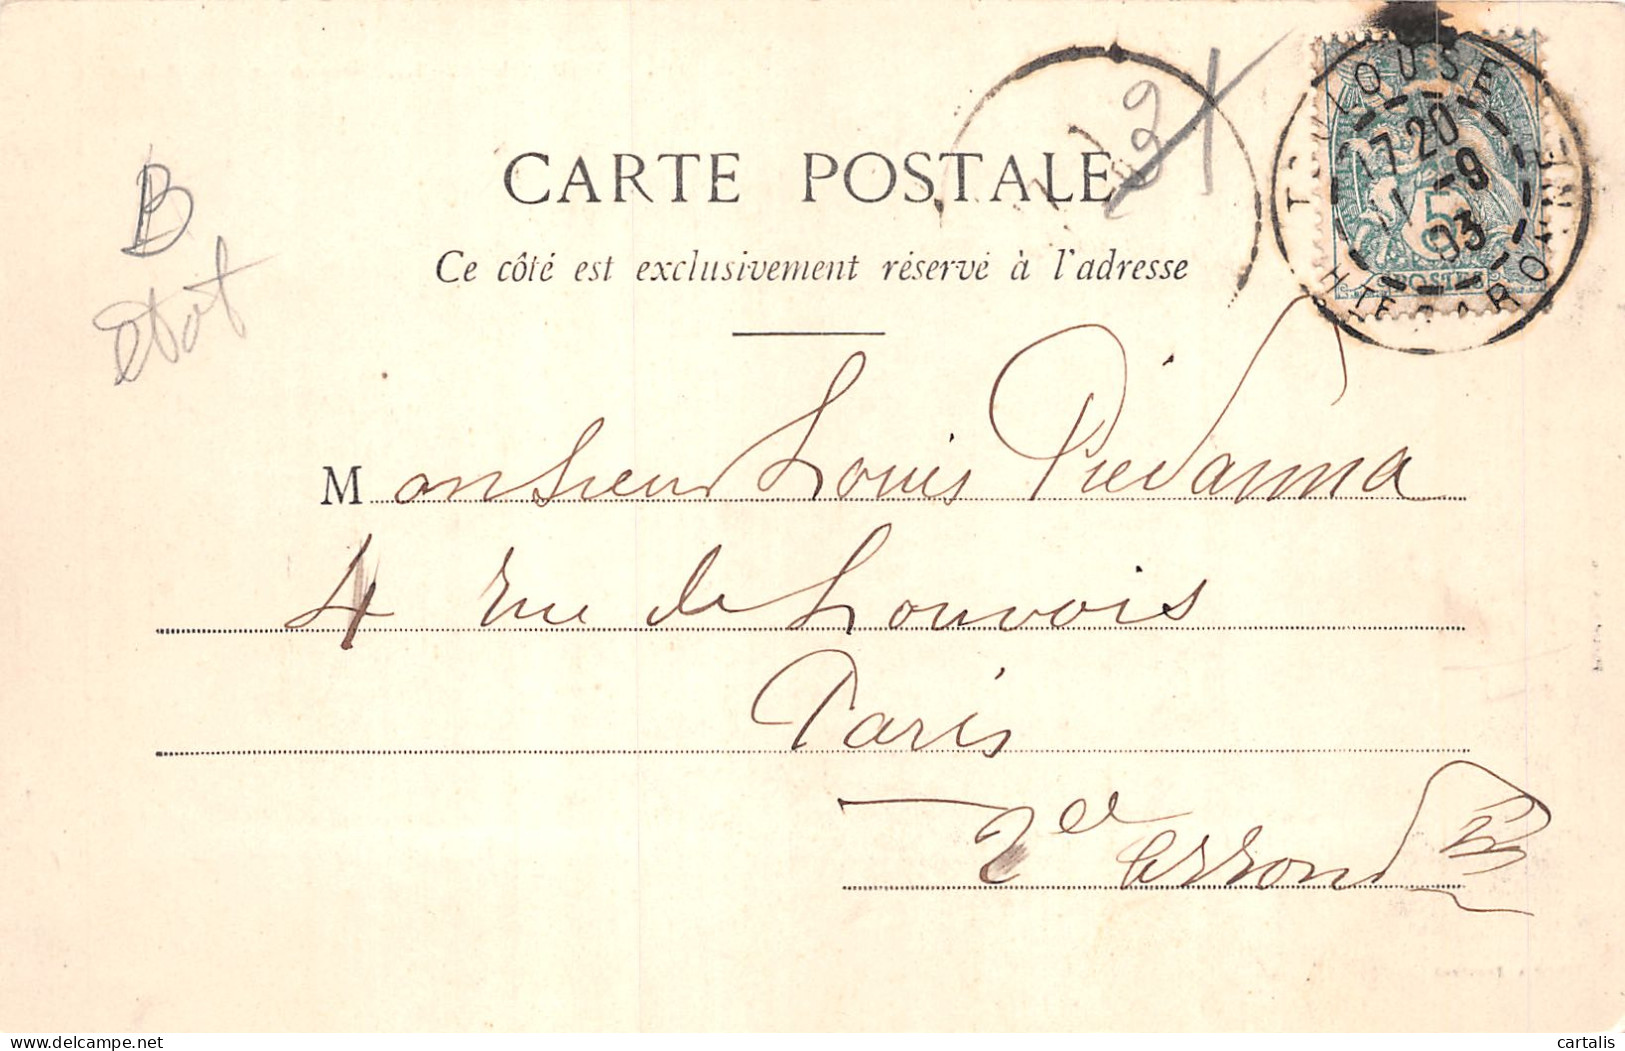 CARTE POSTALE
Ce côté est exclusivement réservé à l'adresse
TOULOUSE
17 20
11 -9
03
HTE GARONNE
5
POSTES
B
état
Monsieur Louis
4 rue de Louvois
Paris
2e arrond
cartalis
delcampe.net